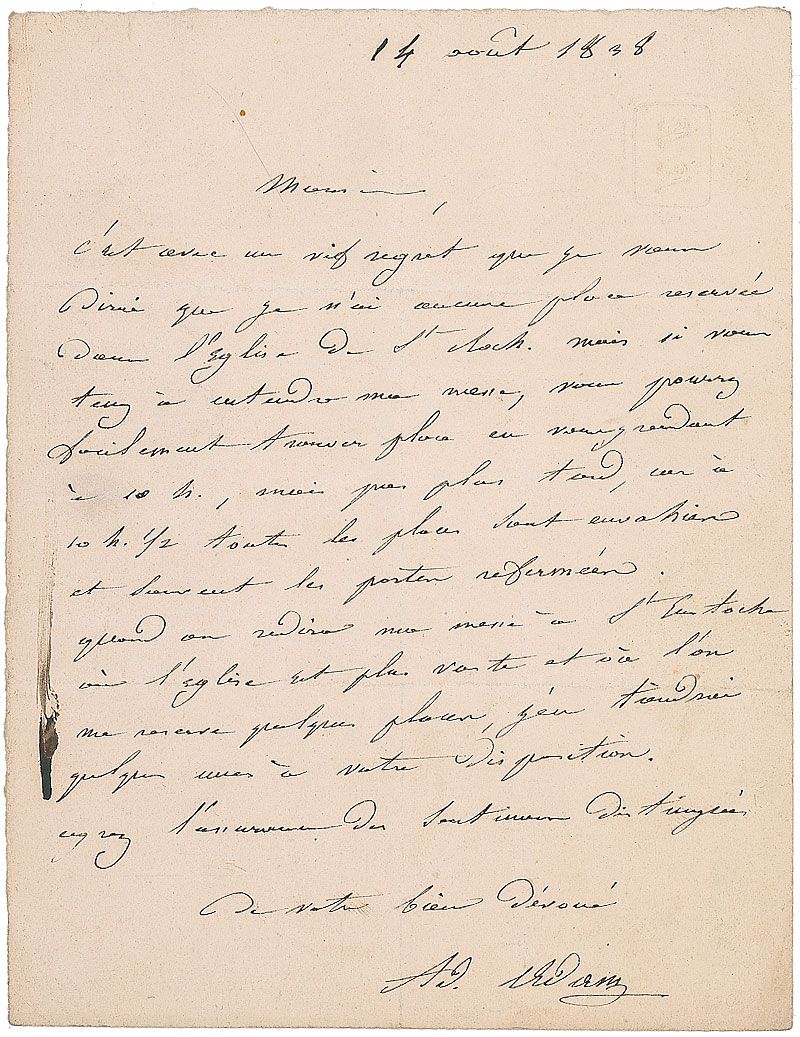 14 août 1838
Monsieur,
c'est avec un vif regret que je vous
dirai que je n'ai aucune place reservée
dans l'Eglise de St Roch. mais si vous
tenez à entendre ma messe, vous pourrez
facilement trouver place en vous y rendant
à 10 h., mais pas plus tard, car à
10 h. 1/2 toutes les places sont envahies
et souvent les portes refermées.
quand on redira ma messe à St Eustache
où l'Eglise est plus vaste et où l'on
me reserve quelques places, j'en tiendrai
quelques unes à votre disposition.
agreez l'assurance des sentimens distingués
de votre bien dévoué
Ad. Adam